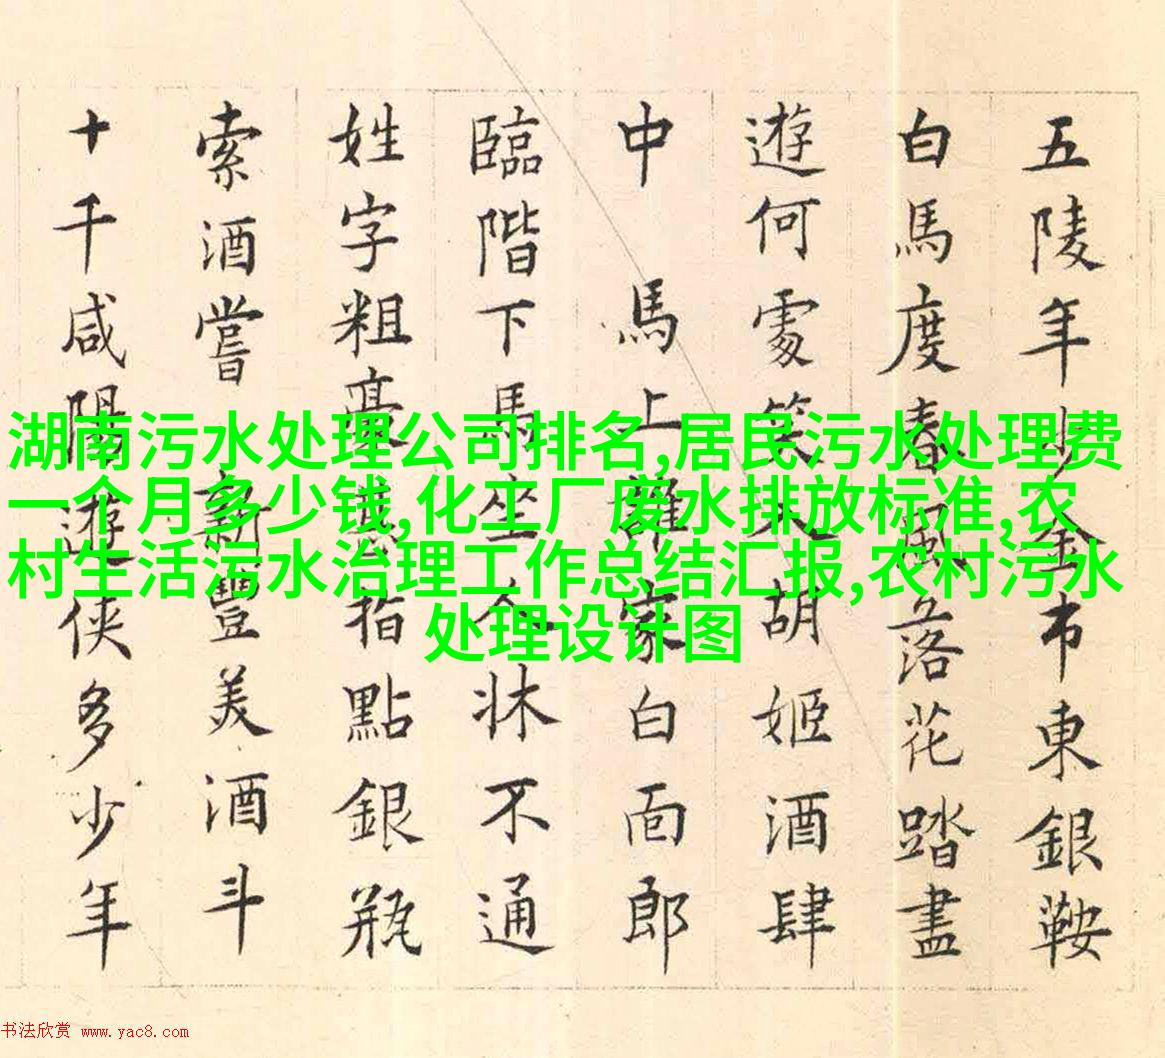 五陵年少金市東銀鞍
白馬度春風落花踏盡
遊何處笑入胡姬酒肆
中 馬上誰家白面郎
臨階下馬坐人牀不通
姓字粗豪甚指點銀瓶
索酒嘗 新豐美酒斗
十千咸陽遊俠多少年
湖南污水处理公司排名,居民污水处理费
一个月多少钱,化工厂废水排放标准,农
村生活污水治理工作总结汇报,农村污水
处理设计图
书法欣赏 www.yac8.com